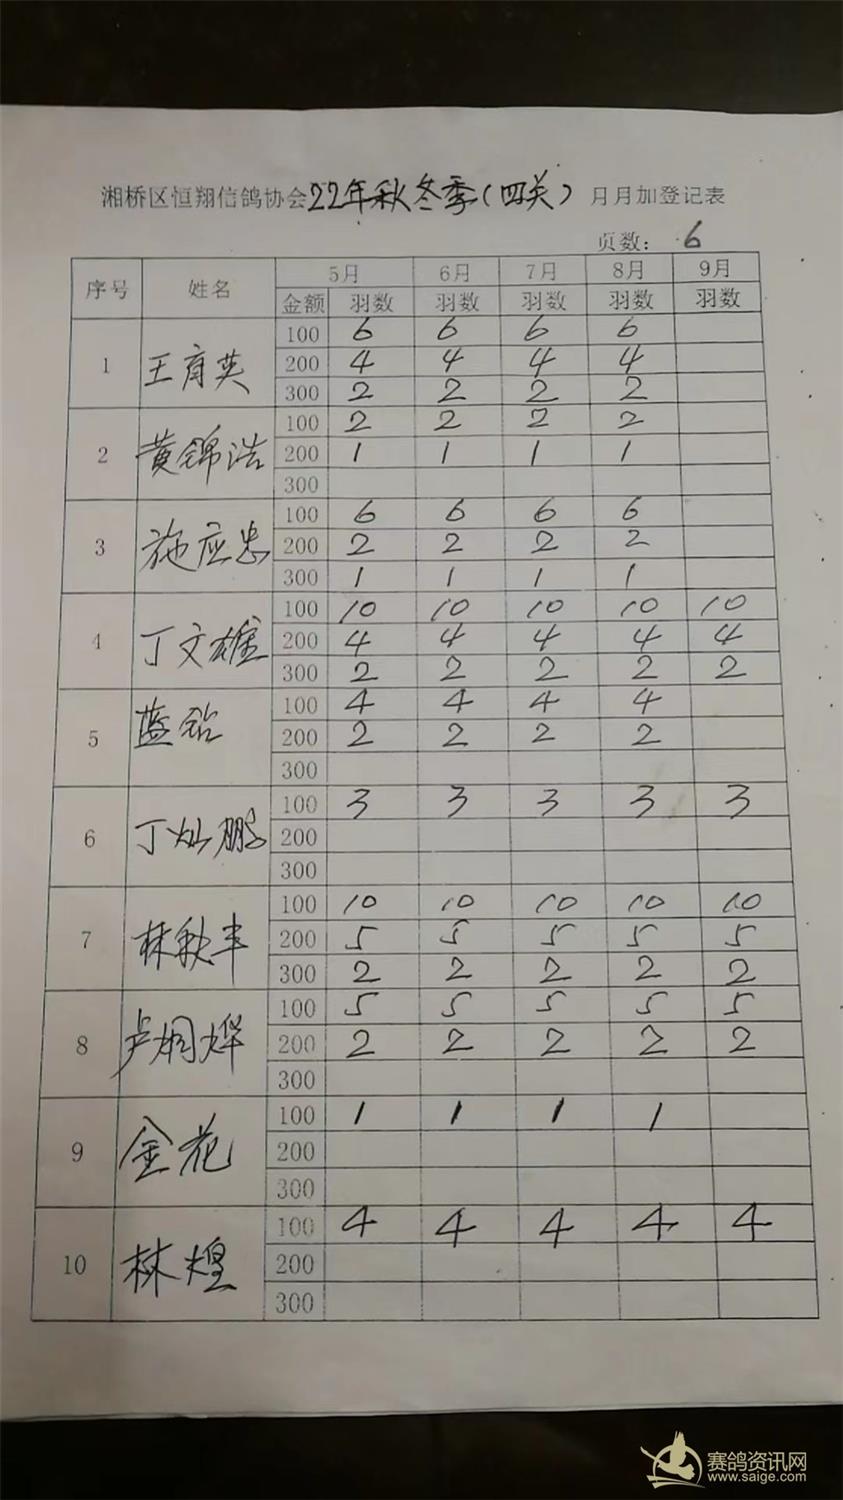 湘桥区恒翔信鸽协会22年秋冬季(四关)月月加登记表
页数: 6
序号 姓名 5月 6月 7月 8月 9月
金额 羽数 羽数 羽数 羽数 羽数
100 6 6 6 6
1 王育英 200 4 4 4 4
300 2 2 2 2
100 2 2 2 2
2 黄锦浩 200 1 1 1 1
300
100 6 6 6 6
3 施应忠 200 2 2 2 2
300 1 1 1 1
100 10 10 10 10 10
4 丁文雄 200 4 4 4 4 4
300 2 2 2 2 2
100 4 4 4 4
5 蓝钻 200 2 2 2 2
300
100 3 3 3 3 3
6 丁灿鹏 200
300
100 10 10 10 10 10
7 林秋丰 200 5 5 5 5 5
300 2 2 2 2 2
100 5 5 5 5 5
8 卢炯烨 200 2 2 2 2 2
300
100 1 1 1 1
9 金花 200
300
100 4 4 4 4 4
10 林煌 200
300
赛鸽资讯网
www.saige.com